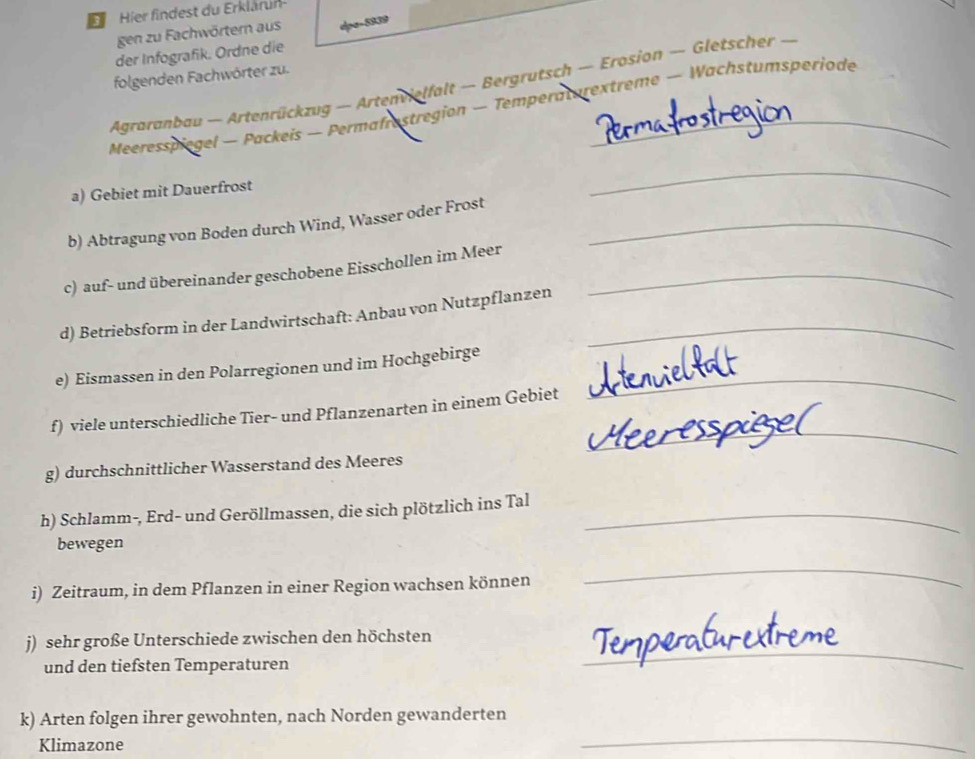 3 Hier findest du Erklärun-
gen zu Fachwörtern aus
der Infografik. Ordne die
folgenden Fachwörter zu.
dpa-5939
Agraranbau — Artenrückzug — Artenvielfalt — Bergrutsch — Erosion — Gletscher —
Meeresspiegel — Packeis — Permafrostregion — Temperaturextreme — Wachstumsperiode
a) Gebiet mit Dauerfrost
Permafrostregion
b) Abtragung von Boden durch Wind, Wasser oder Frost
c) auf- und übereinander geschobene Eisschollen im Meer
d) Betriebsform in der Landwirtschaft: Anbau von Nutzpflanzen
e) Eismassen in den Polarregionen und im Hochgebirge
f) viele unterschiedliche Tier- und Pflanzenarten in einem Gebiet
Artenvielfalt
g) durchschnittlicher Wasserstand des Meeres
Meeresspiegel
h) Schlamm-, Erd- und Geröllmassen, die sich plötzlich ins Tal
bewegen
i) Zeitraum, in dem Pflanzen in einer Region wachsen können
j) sehr große Unterschiede zwischen den höchsten
und den tiefsten Temperaturen
Temperaturextreme
k) Arten folgen ihrer gewohnten, nach Norden gewanderten
Klimazone